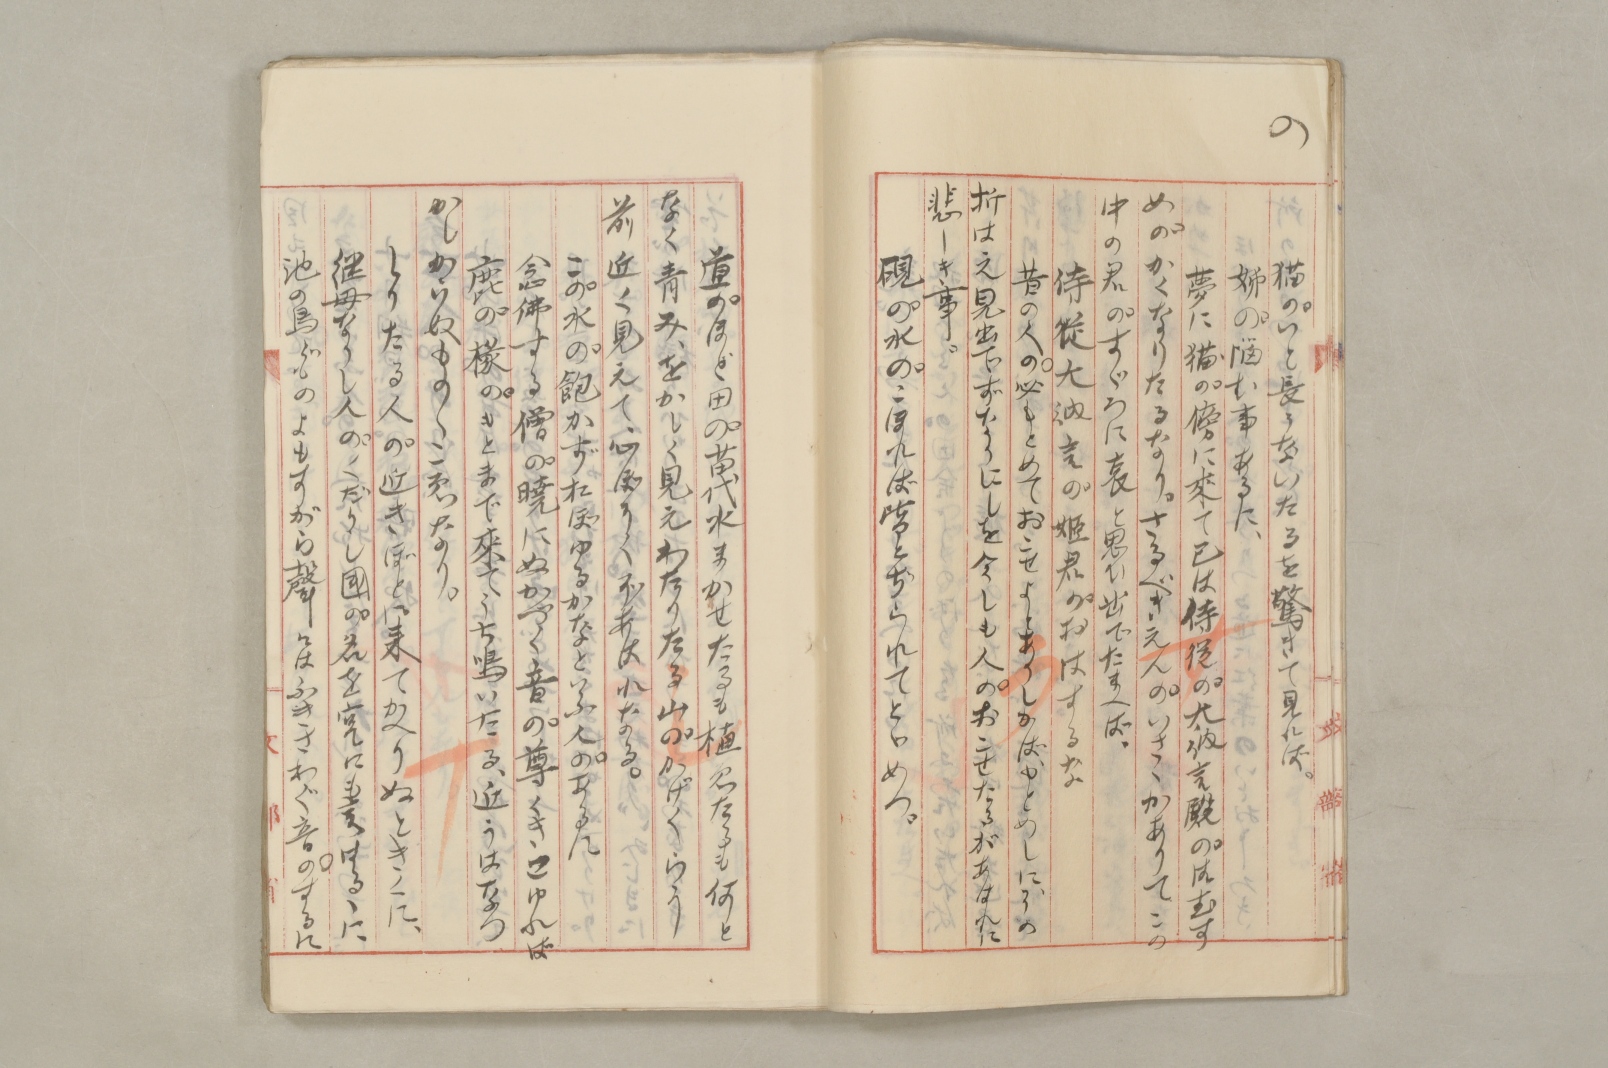 の
猫の、いと長うないたるを驚きて見れば。
姉の悩む事あるに、
夢に猫の傍に来て己は侍従の大納言殿の御むす
めのかくなりたるなり。さるべきえんのいさゝかありてこの
中の君のすゞろに哀と思ひ出でたまへば、
侍従大納言の姫君のおはするな
昔の人の必もとめておこせよとありしかばもとめしにその
折はえ見出でずなりにしを今しも人のおこせたるがあはれに
悲しき事
硯の水のこほれば皆とぢられてとゞめつ。
道のほど田の苗代水まかせたるも植ゑたるも何と
なく青みをかしく見えわたりたる山のかげくらう
前近く見えて心ぼそくあはれなる。
この水の飽かずおぼゆるかなといふ人のあるに
念佛する僧の暁にぬかづく音の尊くきこゆれば
鹿の椽のもとまで来てうち鳴いたる、近うはなつ
かしからぬものゝこゑなり。
しりたる人の近きほどに来てかへりぬときくに、
継母なりし人のくだりし國の名を宮にもいはるゝに
池の鳥どものよもすがら聲々はぶきさわぐ音のするに
文部省